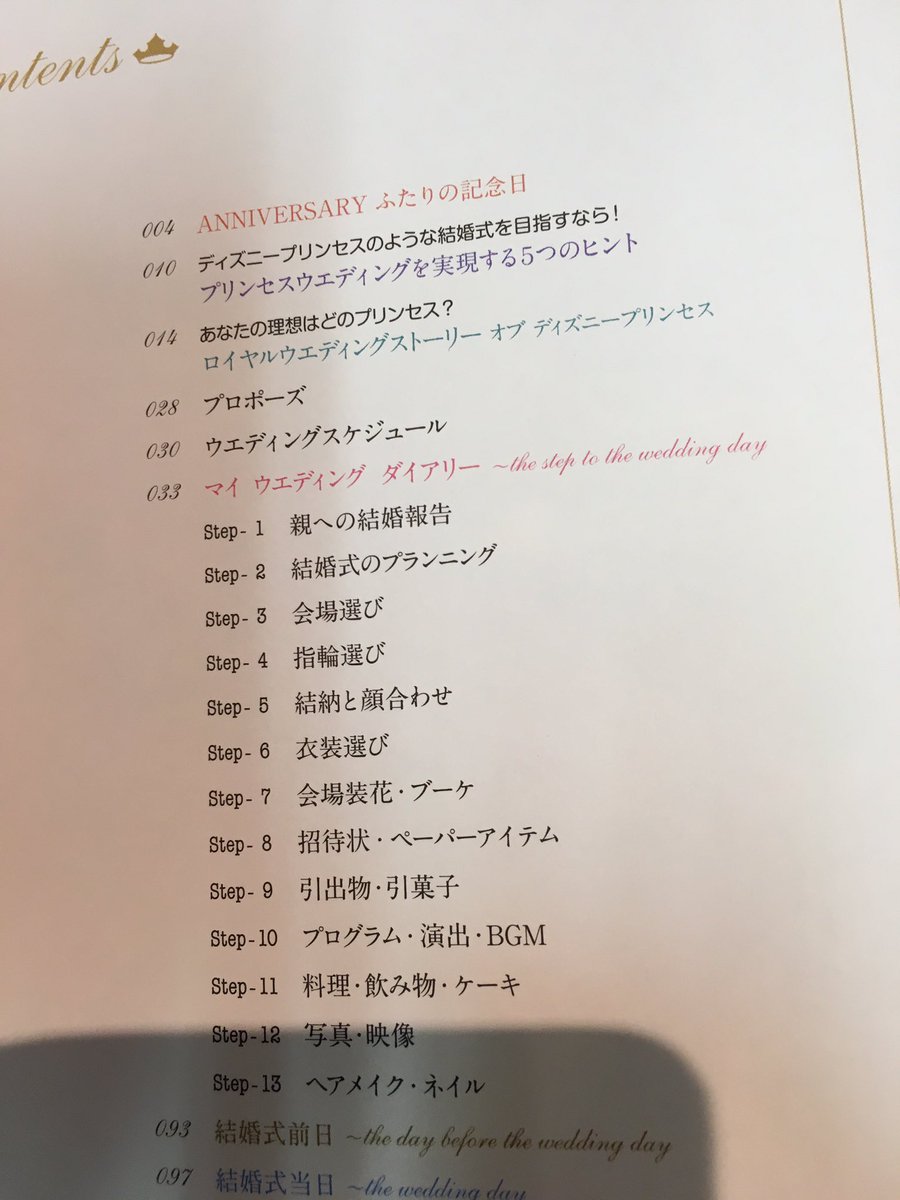 ntents
004 ANNIVERSARY ふたりの記念日
010 ディズニープリンセスのような結婚式を目指すなら!
プリンセスウエディングを実現する5つのヒント
014 あなたの理想はどのプリンセス?
ロイヤルウエディングストーリー オブ ディズニープリンセス
028 プロポーズ
030 ウエディングスケジュール
033 マイ ウエディング ダイアリー ~the step to the wedding day
Step- 1 親への結婚報告
Step- 2 結婚式のプランニング
Step- 3 会場選び
Step- 4 指輪選び
Step- 5 結納と顔合わせ
Step- 6 衣装選び
Step- 7 会場装花・ブーケ
Step- 8 招待状・ペーパーアイテム
Step- 9 引出物・引菓子
Step-10 プログラム・演出・BGM
Step-11 料理・飲み物・ケーキ
Step-12 写真・映像
Step-13 ヘアメイク・ネイル
093 結婚式前日 ~the day before the wedding day
097 結婚式当日 ~the wedding day